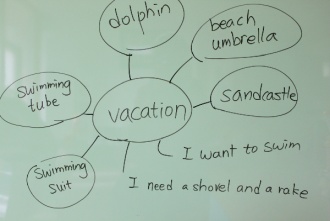 dolphin
beach
umbrella
Swimming
tube
vacation
sandcastle
I want to swim
Swimming
suit
I need a shovel and a rake